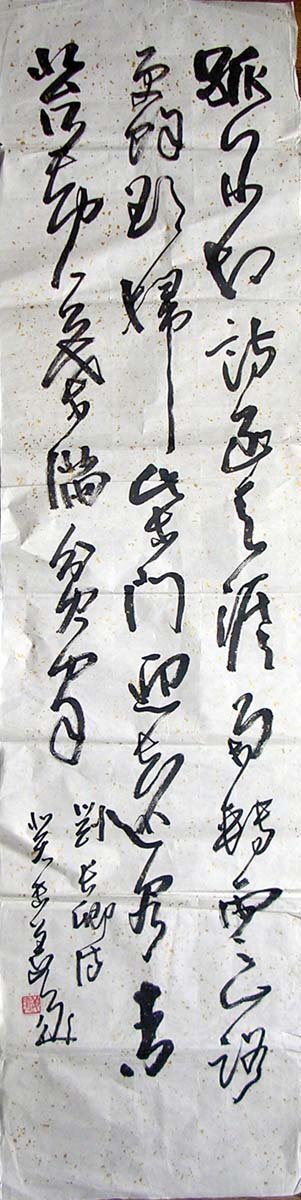 孤舟相訪至天涯萬轉雲山路
更賒欲掃柴門迎遠客青
苔黄葉滿貧家
劉長卿詩
癸未